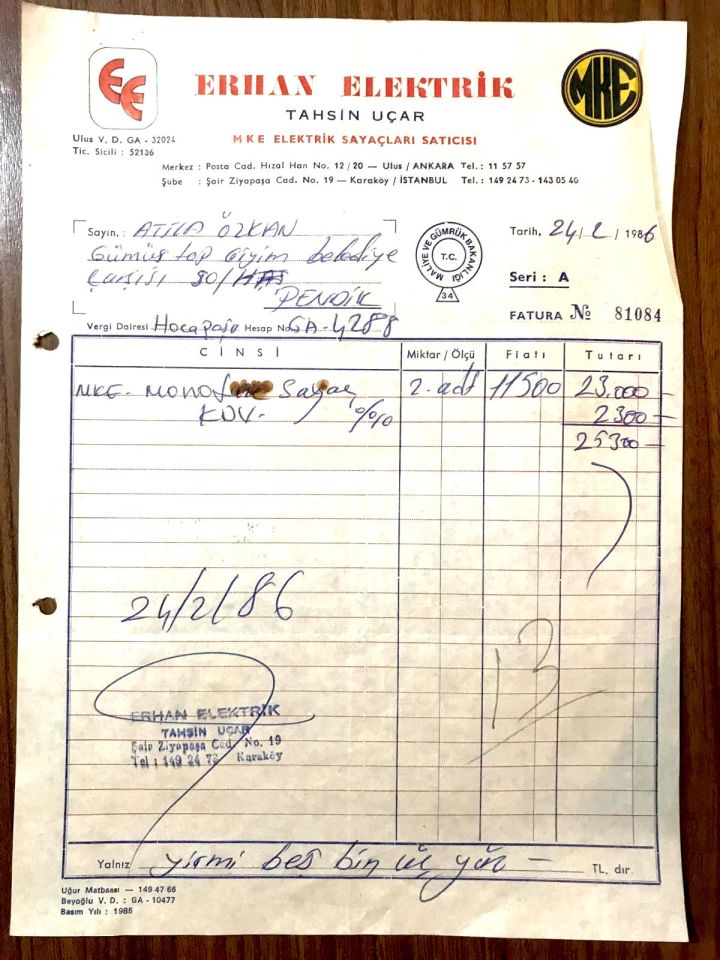 EE
ERHAN ELEKTRİK
MKE
TAHSİN UÇAR
Ulus V. D. GA - 32024
Tic. Sicili : 52136
MKE ELEKTRİK SAYAÇLARI SATICISI
Merkez : Posta Cad. Hızal Han No. 12/20 — Ulus / ANKARA Tel. : 11 57 57
Şube : Şair Ziyapaşa Cad. No. 19 — Karaköy / İSTANBUL Tel. : 149 24 73 - 143 05 40
Sayın, : ATİLA ÖZKAN
Gümüş top Giyim belediye
Çarşısı 80/
PENDİK
MALİYE VE GÜMRÜK BAKANLIĞI
T.C.
34
Tarih, 24/2/1986
Seri : A
FATURA No 81084
Vergi Dairesi Hocapaşa Hesap No. GA-4288
CİNSİ Miktar / Ölçü Fiatı Tutarı
MKE- Monofaze Sayaç 2. adt 11500 23.000—
KDV. %10 2300—
25300—
24/2/86
13
ERHAN ELEKTRİK
TAHSİN UÇAR
Şair Ziyapaşa Cad. No. 19
Tel : 149 24 73 Karaköy
Yalnız yirmi beş bin üç yüz — TL. dır.
Uğur Matbaası — 149 47 66
Beyoğlu V. D. : GA - 10477
Basım Yılı : 1985